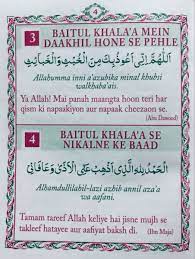 4
3
BAITUL KHALA'A MEIN
DAAKHIL HONE SE PEHLE
اَللّٰهُمَّ اِنِّىْ اَعُوْذُبِكَ مِنَ الْخُبُثِ وَالْخَبَائِثِ
Allahumma inni a'azubika minal khubsi
walkhaba'ais.
Ya Allah! Mai panah maangta hoon teri har
qism ki napaakiyon aur napaak cheezaon se.
(Abu Dawood)
4
BAITUL KHALA'A SE
NIKALNE KE BAAD
اَلْحَمْدُ لِلّٰهِ الَّذِىْ اَذْهَبَ عَنِّى الْاَذٰى وَعَافَانِىْ
Alhamdulillahil-lazi azhib annil aza'a wa
aafani.
Tamam tareef Allah keliye hai jisne mujh se
takleef hatayee aur aafiyat baksh di. (Ibn Maja)